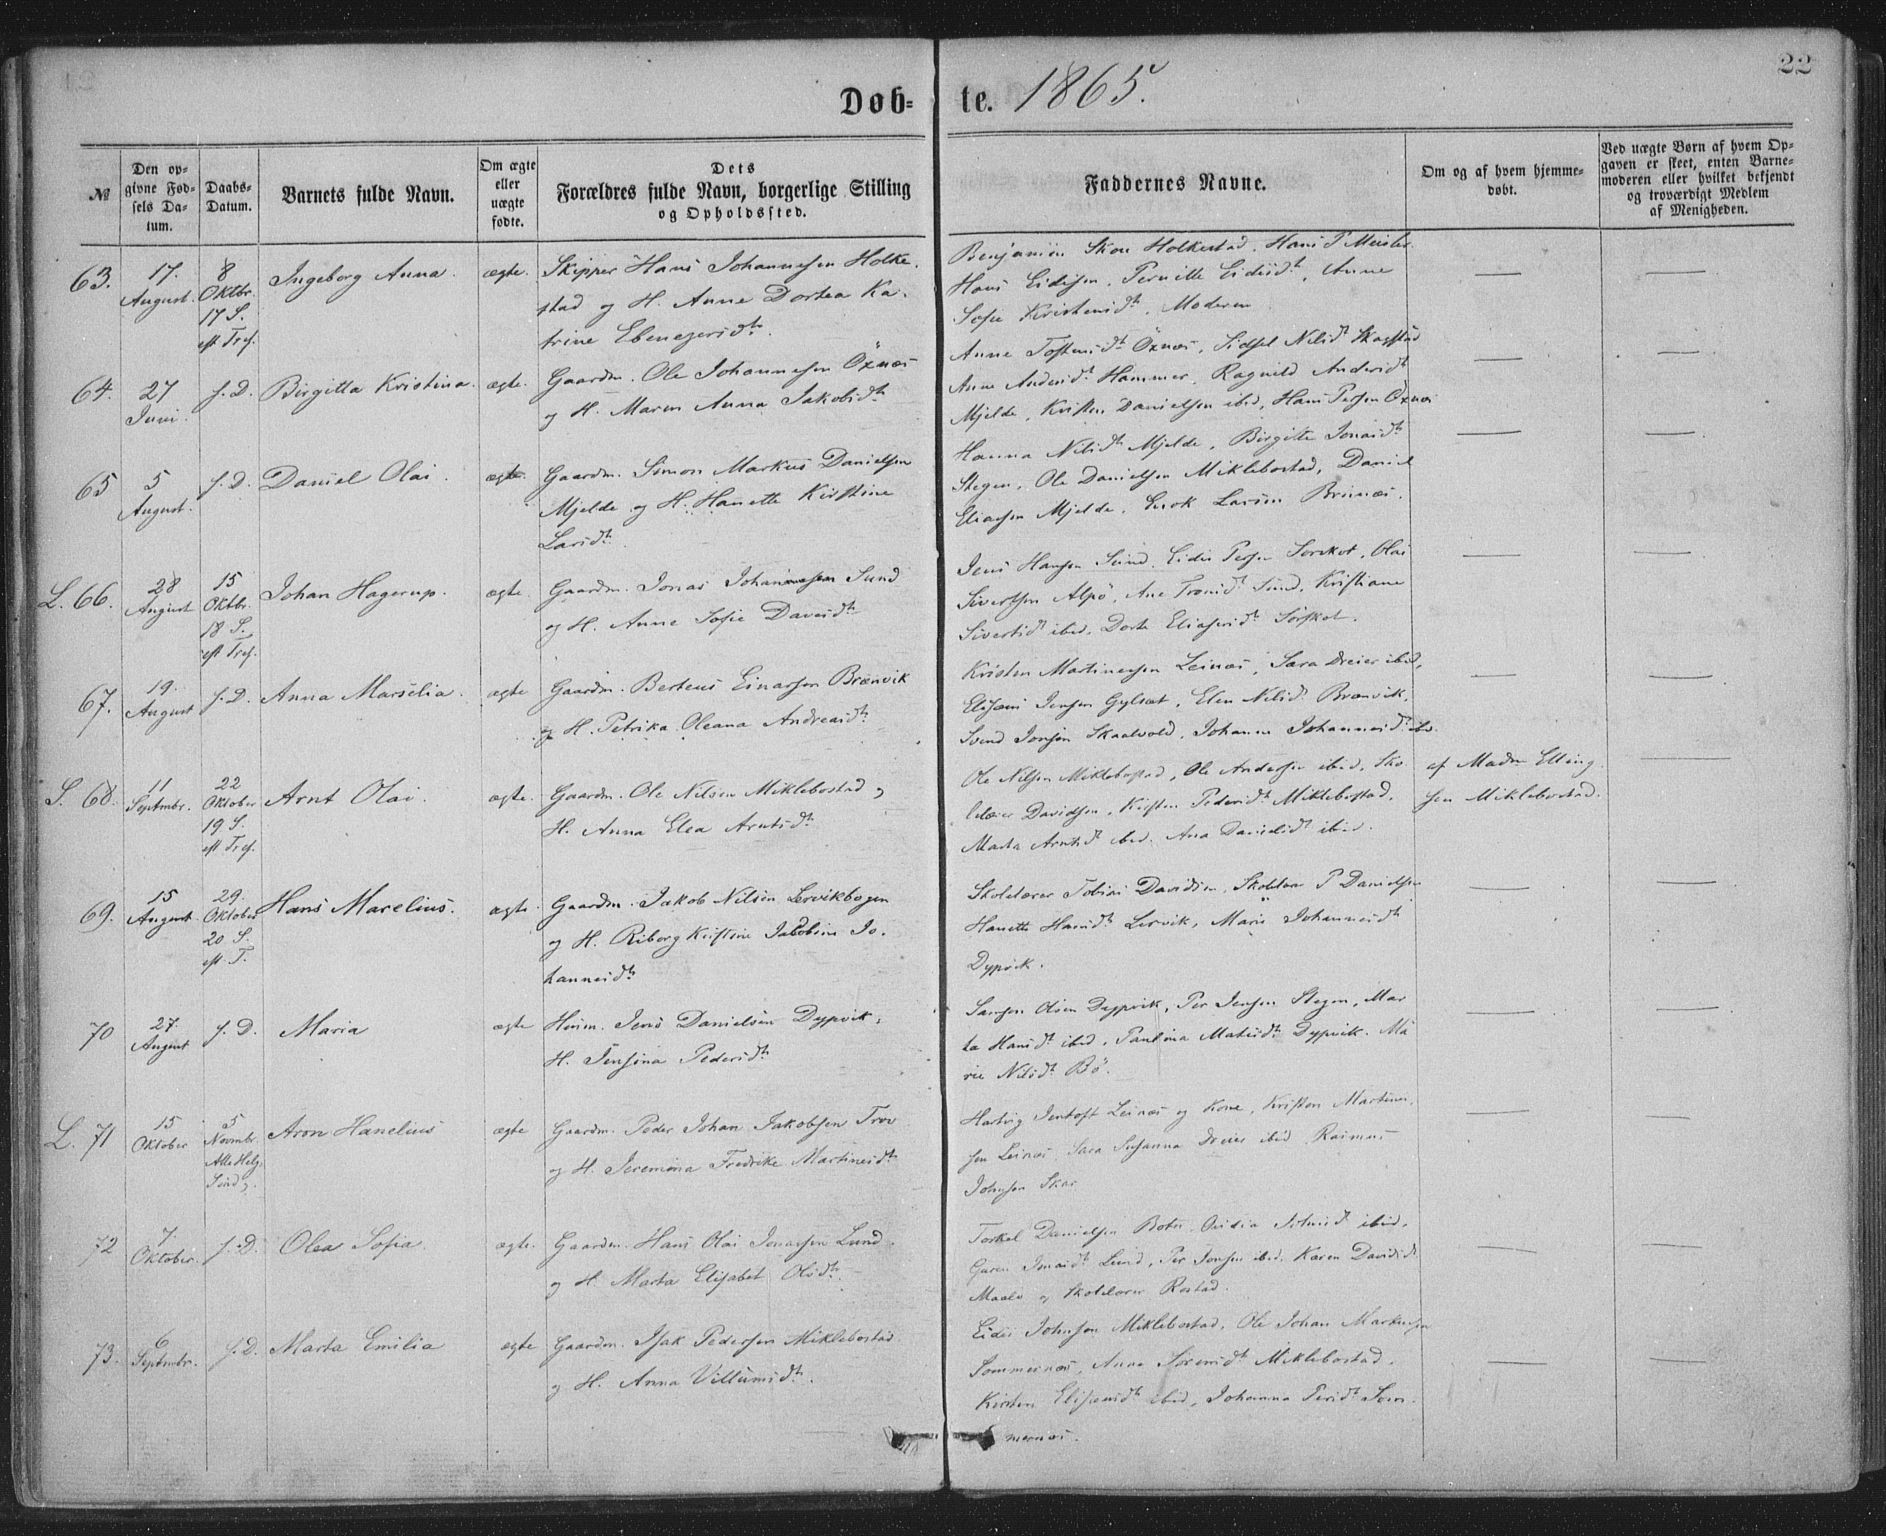 22
Døb- te. 1865.
№
Den opgivne Fødsels Datum.
Daabs-Datum.
Barnets fulde Navn.
Om ægte eller uægte fødte.
Dets Forældres fulde Navn, borgerlige Stilling og Opholdssted.
Faddernes Navne.
Om og af hvem hjemmedøbt.
Ved uægte Børn af hvem Opgaven er skeet, enten Barnemoderen eller hvilket bekjendt og troværdigt Medlem af Menigheden.
63. 17. August. 8 Oktbr. 17 S. eft Tref. Ingeborg Anna. ægte.
Skipper Hans Johannesen Holke-
stad og H. Anne Dortea Ka-
trine Ebenezersdtr.
Benjamin Skou Holkestad, Hans P Meisler.
Hans Eidisen, Pernille Eidisdtr, Anne
Sofie Kristensdtr, Moderen
64. 27 Juni. s. D. Birgitta Kristina. ægte.
Gaardm. Ole Johannesen Öxnæs
og H. Maren Anna Jakobsdtr
Anne Tostensdtr Öxnæs, Sidsel Nilsd Skagstad
Anne Andersdtr Hammer, Ragnild Andersdtr
Mjelde, Kristen Danielsen ibid, Hans Persen Öxnæs
65 5 August. s. D. Daniel Olai. ægte.
Gaardm. Simon Markus Danielsen
Mjelde og H. Hanette Kirstine
Larsdtr.
Hanna Nilsdtr Mjelde, Birgitte Jonasdtr
Stegen, Ole Danielsen Miklebostad, Daniel
Eliassen Mjelde, Enok Larsen Brunæs.
L. 66. 28 August 15 Oktbr. 18 S. eft Tref. Johan Hagerup. ægte.
Gaardm. Jonas Johannesen Sund
og H. Anne Sofie Davidsdtr
Jens Hansen Sund. Eidis Persen Sörskot, Olai
Sivertsen Alpö, Ane Tronsdt Sund, Kristiane
Sivertsdt ibid. Dorte Eliasensdt Sörskot.
67. 19. August s. D. Anna Marselia. ægte
Gaardm. Berteus Einarsen Brænvik
og H. Petrika Oleana Andreasdtr
Kristen Martinussen Leinæs, Sara Dreier ibid,
Elisæus Jensen Gylsæt, Elen Nilsdt Brænvik,
Svend Jonsen Skaalvold, Johanna Johannesdt ibid.
S. 68. 11 Septmbr. 22 Oktober 19 S. eft Tref. Arnt Olai. ægte.
Gaardm. Ole Nilsen Miklebostad og
H. Anna Elea Arntsdtr
Ole Nilsen Miklebostad, Ole Andersen ibid, Sko-
lelærer Davidsen, Kirsten Pedersdtr Miklebostad,
Marta Arntsdt ibid. Ana Danielsdt ibid.
af Madm Elling-
sen Miklebostad.
69. 15 August 29 Oktober 20 S. eft T. Hans Marelius. ægte.
Gaardm. Jakob Nilsen Lervikbogen
og H. Riborg Kirstine Jakobine Jo-
hannesdtr
Skolelærer Tobias Davidsen, Skolelær P Danielsen
Hanette Hansdtr Lervik, Marie Johannesdtr
Dypvik.
70 27 August s. D. Maria ægte
Huusm. Jens Danielsen Dypvik,
H. Jensina Pedersdtr
Olsen Dypvik, Per Jensen Stegen, Mar-
ta Hansdt ibid, Paulina Matisdtr Dypvik. Ma-
rie Nilsdt Bö.
L. 71 15 Oktober 5 Novmbr. Alle Helg. Sönd. Aron Hanelius ægte
Gaardm. Peder Johan Jakobsen Trov
og H. Jeremina Fredrike Martinusdtr
Hartvig Jentoft Leinæs og Kone, Kristen Martinus-
sen Leinæs, Sara Susanna Dreier ibid, Rasmus
Johnsen Skar
72 7 Oktober. s. D. Olea Sofia. ægte.
Gaardm. Hans Olai Jonassen Lund
og H. Marta Elisabet Olsdtr.
Torkel Danielsen Botn, ibid,
Guren Jonasdt Lund, Per Jonsen ibid. Karen Davidsdt
Maalö og Skolelærer Rostad.
73. 6 Septmbr. s. D. Marta Emilia ægte
Gaardm. Isak Pedersen Miklebostad
og H. Anna Villumsdtr.
Eidis Johnsen Miklebostad, Ole Johan Markussen
Sommernæs, Anna Sörensdtr Miklebostad.
Kirsten Elisæusdt ibid, Johanna Persdt Som-
mernæs.